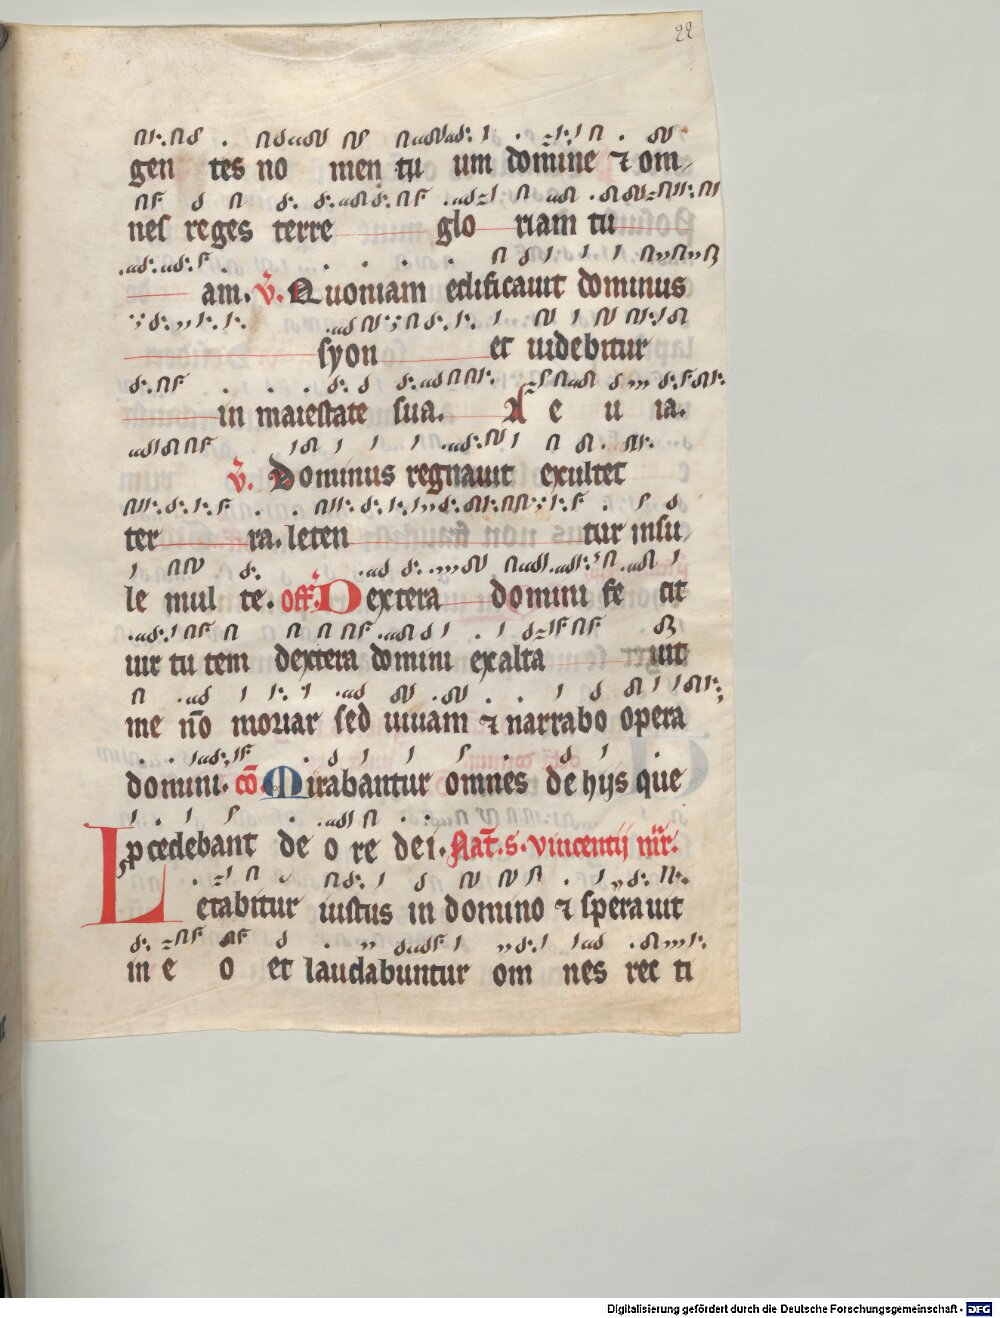 22
gen tes no men tu um domine ⁊ om
nes reges terre glo riam tu
am. v̄. Quoniam edificauit dominus
syon et uidebitur
in maiestate sua. A e u ia.
v̄. Dominus regnauit exultet
ter ra. leten tur insu
le mul te. off. Dextera domini fe cit
uir tu tem dextera domini exalta uit
me nō moriar sed uiuam ⁊ narrabo opera
domini. cō Mirabantur omnes de hijs que
ꝓcedebant de o re dei. Nat̄. s. vincentij mr̄.
Letabitur iustus in domino ⁊ sperauit
in e o et laudabuntur om nes rec ti
Digitalisierung gefördert durch die Deutsche Forschungsgemeinschaft - DFG